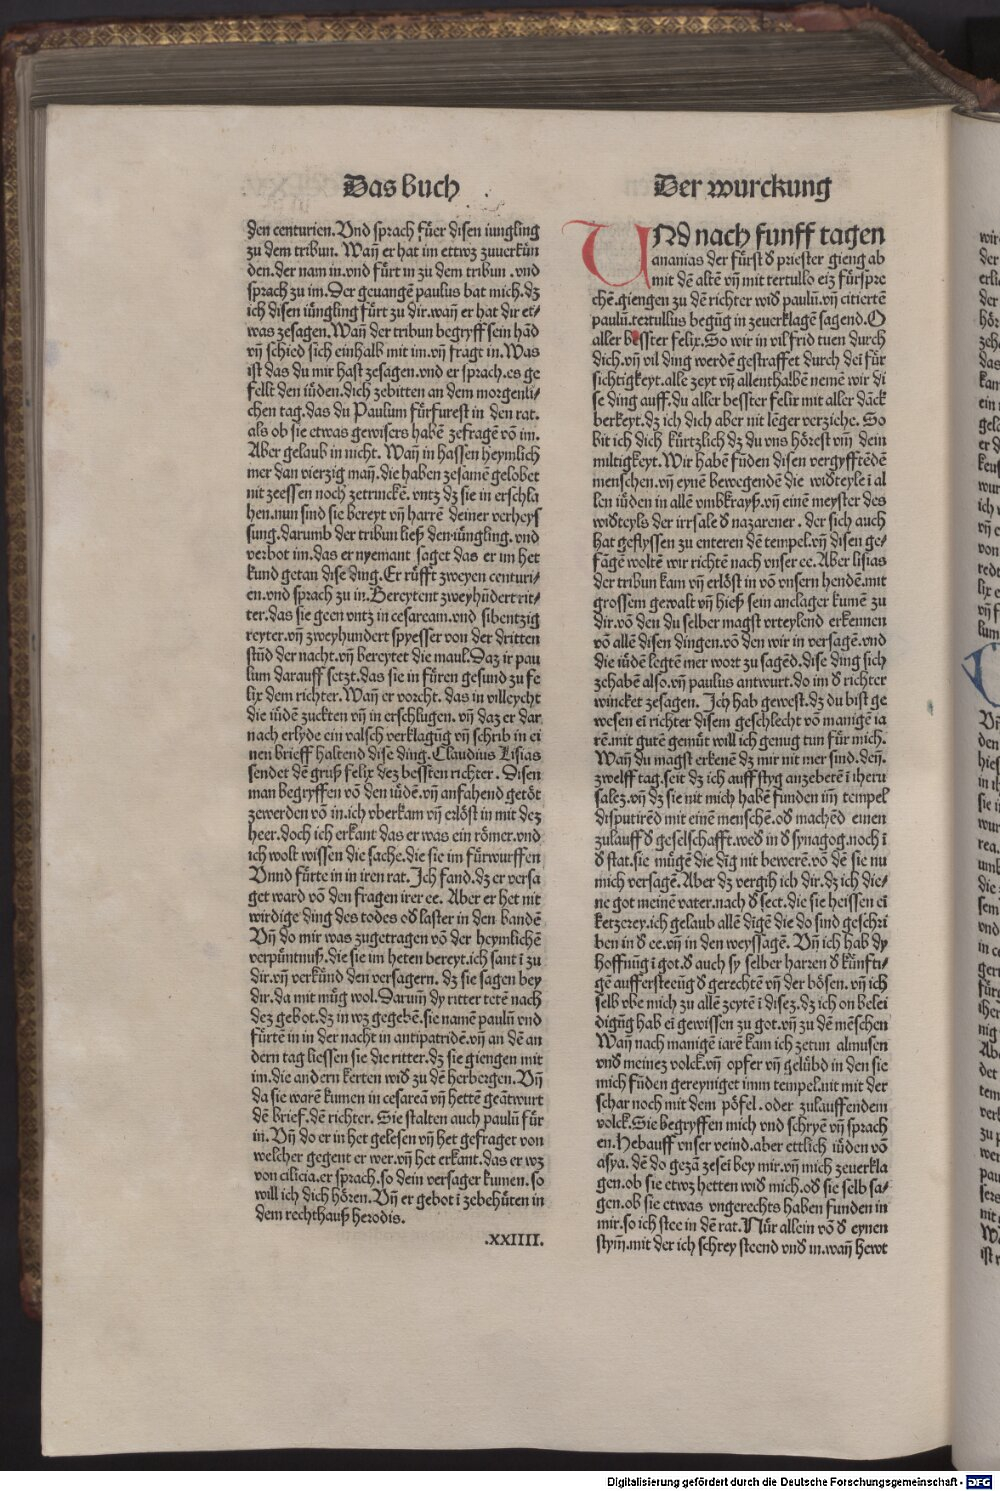 Das buch
den centurien. Vnd sprach fůer disen iungling
zu dem tribun. Wañ er hat im ettwz zuuerkün
den. der nam in. vnd fůrt in zu dem tribun. vnd
sprach zu im. Der geuangē paulus bat mich. dz
ich disen iůngling fůrt zu dir. wañ er hat dir et⸗
was zesagen. Wañ der tribun begryff sein hād
vñ schied sich einhalb mit im. vñ fragt in. Was
ist das du mir hast zesagen. vnd er sprach. es ge
fellt den iůden. dich zebitten an dem morgenli⸗
chen tag. das du Paulum fůrfurest in den rat.
als ob sie etwas gewisers habē zefragē vō im.
Aber gelaub in nicht. Wañ in hassen heymlich
mer dan vierzig mañ. die haben zesamē gelobet
nit zeessen noch zetrinckē. vntz dz sie in erschla
hen. nun sind sie bereyt vñ harrē deiner verheys
sung. darumb der tribun ließ den iůngling. vnd
verbot im. das er nyemant saget das er im het
kund getan dise ding. Er růfft zweyen centuri⸗
en. vnd sprach zu in. Bereytent zweyhūdert rit⸗
ter. das sie geen vntz in cesaream. vnd sibentzig
reyter. vñ zweyhundert spyesser von der dritten
stūd der nacht. vñ bereytet die maul. Daz ir pau
lum darauff setzt. das sie in fůren gesund zu fe
lix dem richter. Wañ er vorcht. das in villeycht
die iůdē zuckten vñ in erschlugen. vñ daz er dar
nach erlyde ein valsch verklagūg vñ schrib in ei
nen brieff haltend dise ding. Claudius Lisias
sendet dē gruß felix dez bessten richter. Disen
man begryffen vō den iůdē. vñ anfahend getöt
zewerden vō in. ich vberkam vñ erlöst in mit dez
heer. doch ich erkant das er was ein römer. vnd
ich wolt wissen die sache. die sie im fůrwurffen
Vnnd fůrte in in iren rat. Ich fand. dz er versa
get ward vō den fragen irer ee. Aber er het nit
wirdige ding des todes od laster in den bandē
Vñ do mir was zugetragen vō der heymlichē
verpůntnuß. die sie im heten bereyt. ich sant ī zu
dir. vñ verkünd den versagern. dz sie sagen bey
dir. da mit můg wol. Darum̄ dy ritter tetē nach
dez gebot. dz in wz gegebē. sie namē paulū vnd
fůrtē in in der nacht in antipatridē. vñ an dē an
dern tag liessen sie die ritter. dz sie giengen mit
im. die andern kerten wid zu dē herbergen. Vñ
da sie warē kumen in cesareā vñ hettē geātwurt
dē brief. dē richter. Sie stalten auch paulū fůr
in. Vñ do er in het gelesen vñ het gefraget von
welcher gegent er wer. vñ het erkant. das er wz
von cilicia. er sprach. so dein versager kumen. so
will ich dich hören. Vñ er gebot ī zebehůten in
dem rechthauß herodis.
.XXIIII.
Der wurckung
UNd nach funff tagen
ananias der fůrst d priester gieng ab
mit dē altē vñ mit tertullo eiz fůrspre
chē. giengen zu dē richter wid paulū. vñ citiertē
paulū. tertullus begūg in zeuerklagē sagend. O
aller besster felix. So wir in vil frid tuen durch
dich. vñ vil ding werdē gestraffet durch dei fůr
sichtigkeyt. alle zeyt vñ allenthalbē nemē wir di
se ding auff. du aller besster felix mit aller dāck
berkeyt. dz ich dich aber nit lēger verziehe. So
bit ich dich kůrtzlich dz du vns hörest vm̄ dein
miltigkeyt. Wir habē fūden disen vergyfftēdē
menschen. vñ eynē bewegendē die widteyle ī al
len iůden in allē vmbkrayß. vñ einē meyster des
widteyls der irrsale d nazarener. der sich auch
hat geflyssen zu enteren dē tempel. vñ disen ge⸗
fāgē woltē wir richtē nach vnser ee. Aber lisias
der tribun kam vñ erlöst in vō vnsern hendē. mit
grossem gewalt vñ hieß sein anclager kumē zu
dir. vō den du selber magst vrteylend erkennen
vō allē disen dingen. vō den wir in versagē. vnd
die iůdē legtē mer wort zu sagēd. dise ding sich
zehabē also. vñ paulus antwurt. do im d richter
wincket zesagen. Ich hab gewest. dz du bist ge
wesen ei richter disem geschlecht vō manigē ia
rē. mit gutē gemůt will ich genug tun fůr mich.
Wañ du magst erkenē dz mir nit mer sind. deñ.
zwelff tag. seit dz ich auff styg anzebetē ī iheru
salez. vñ dz sie nit mich habē funden im̄ tempel
disputirēd mit einē menschē. od machēd einen
zulauff d geselschafft. wed in d synagog. noch ī
d stat. sie můgē die dīg nit bewerē. vō dē sie nu
mich versagē. Aber dz vergih ich dir. dz ich die⸗
ne got meinē vater. nach d sect. die sie heissen ei
ketzerey. ich gelaub allē dīgē die do sind geschri
ben in d ee. vñ in den weyssagē. Vñ ich hab dy
hoffnūg ī got. d auch sy selber harren d künfti⸗
gē aufferstēūg d gerechtē vñ der bösen. vñ ich
selb vbe mich zu allē zeytē ī disez. dz ich on belei
digūg hab ei gewissen zu got. vñ zu dē mēschen
Wañ nach manigē iarē kam ich zetun almusen
vnd meinez volck. vñ opfer vñ gelůbd in den sie
mich fūden gereyniget imm tempel. nit mit der
schar noch mit dem pöfel. oder zulauffendem
volck. Sie begryffen mich vnd schryē vñ sprach
en. Hebauff vnser veind. aber ettlich iůden vō
asya. dē do gezā zesei bey mir. vñ mich zeuerkla
gen. ob sie etwz hetten wid mich. od sie selb sa⸗
gen. ob sie etwas vngerechts haben funden in
mir. so ich stee in dē rat. Nůr allein vō d eynen
stym̄. mit der ich schrey steend vnd in. wañ hewt
Digitalisierung gefördert durch die Deutsche Forschungsgemeinschaft - DFG